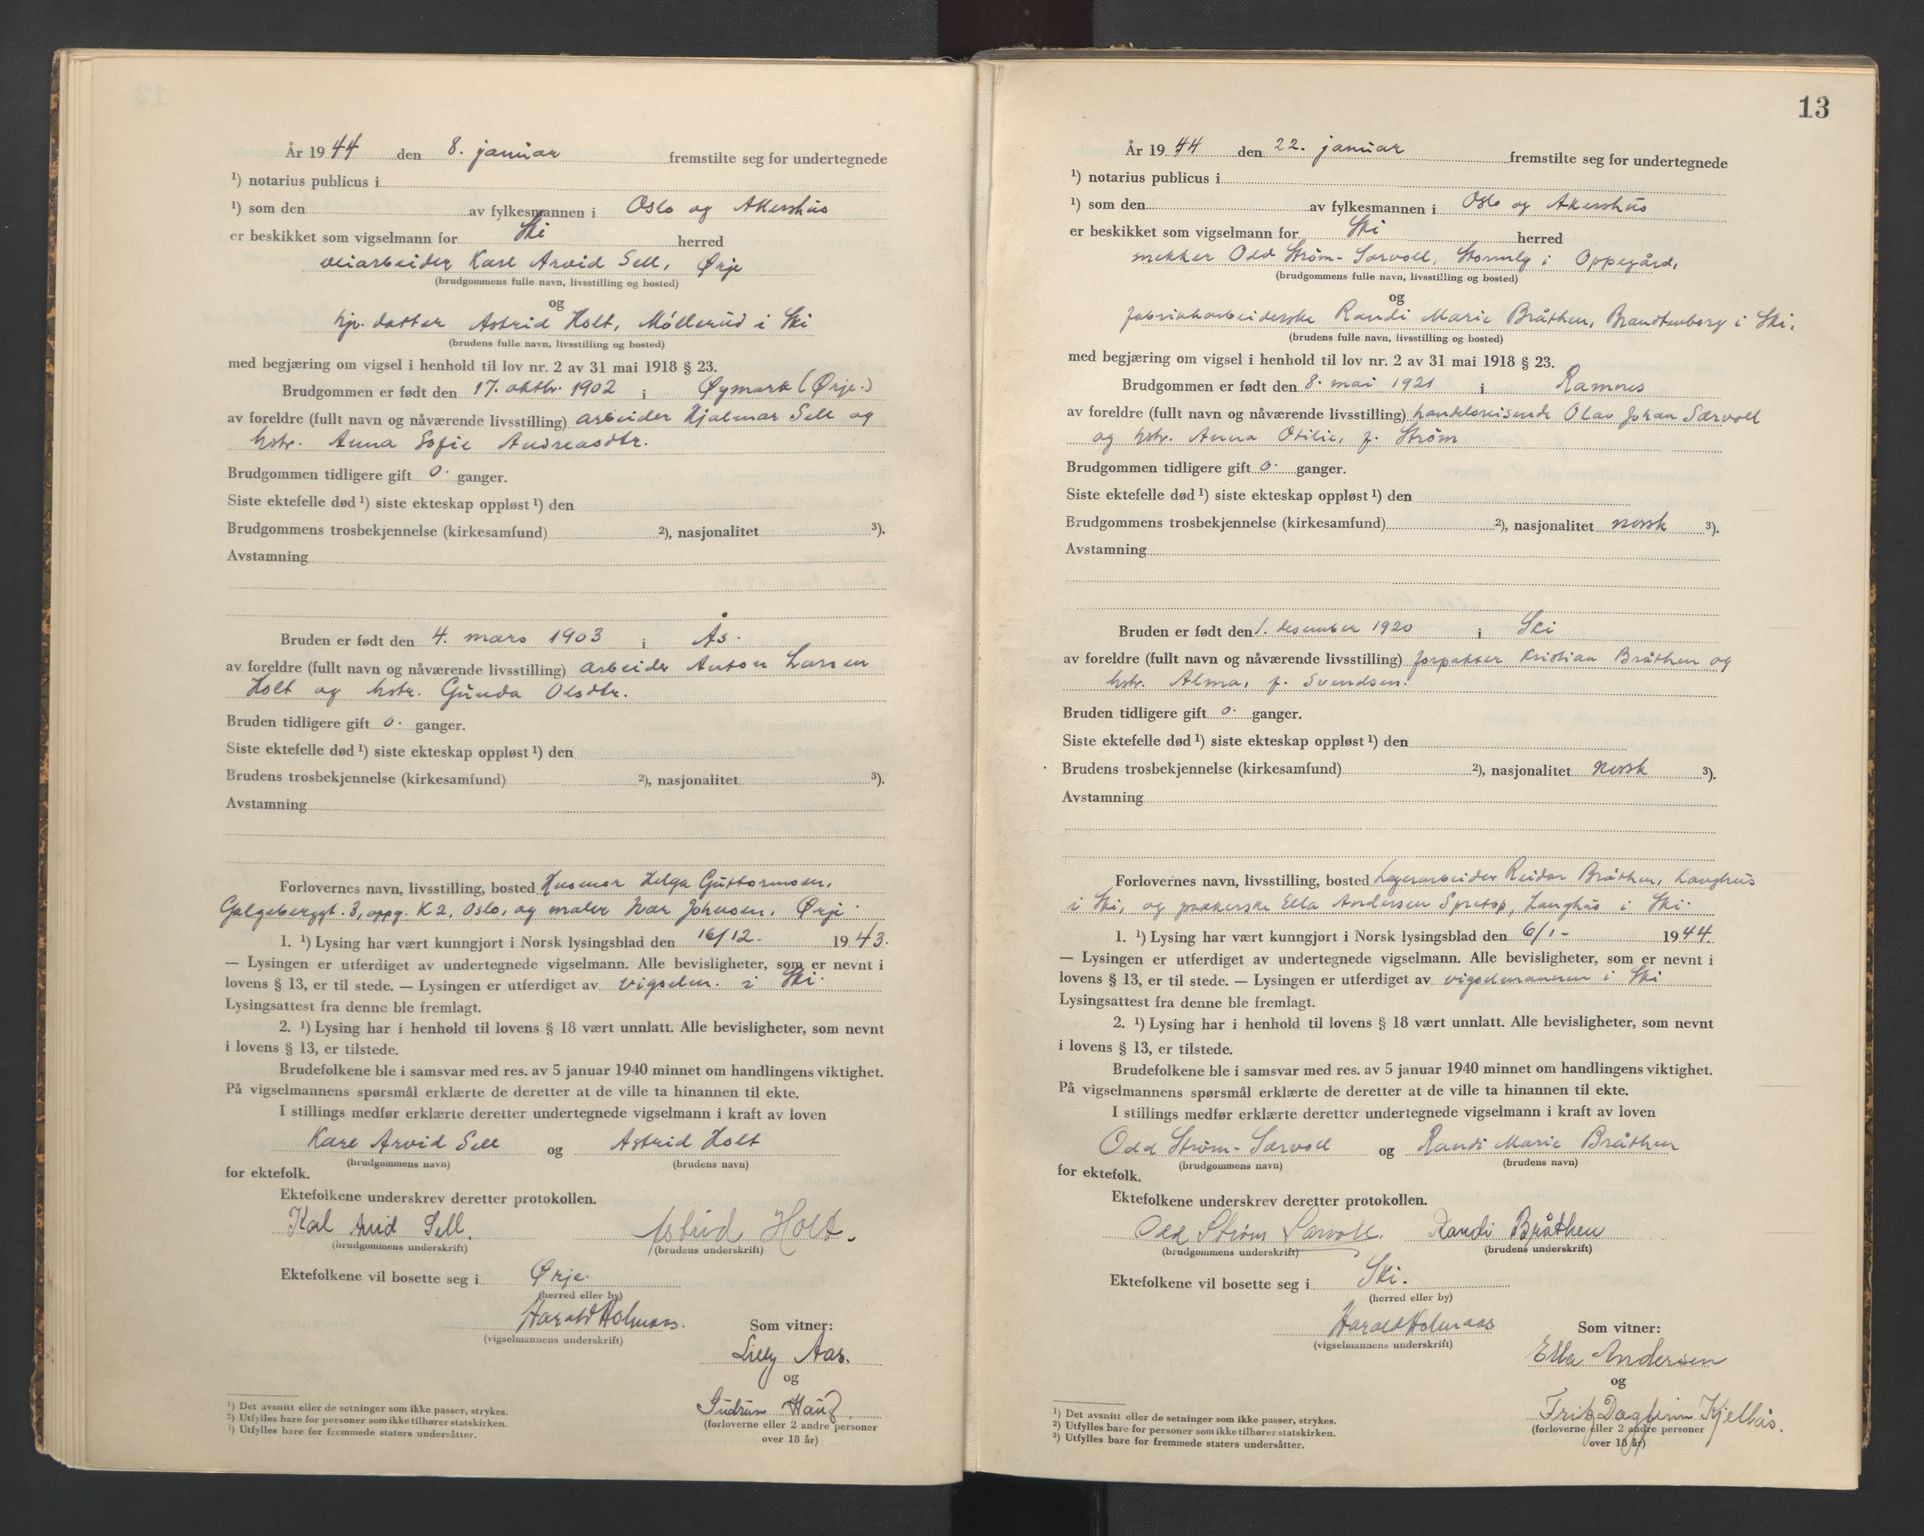 År 1944 den 8. januar fremstilte seg for undertegnede
¹) notarius publicus i
¹) som den av fylkesmannen i Oslo og Akershus
er beskikket som vigselmann for Ski herred
veiarbeider Karl Arvid Sell, Ørje
(brudgommens fulle navn, livsstilling og bosted)
og
hj. datter Astrid Holt, Møllerud i Ski
(brudens fulle navn, livsstilling og bosted)
med begjæring om vigsel i henhold til lov nr. 2 av 31 mai 1918 § 23.
Brudgommen er født den 17. oktbr. 1902 i Øymark (Ørje.)
av foreldre (fullt navn og nåværende livsstilling) arbeider Hjalmar Sell og
hstr. Anna Sofie Andreasdtr.
Brudgommen tidligere gift 0. ganger.
Siste ektefelle død ¹) siste ekteskap oppløst ¹) den
Brudgommens trosbekjennelse (kirkesamfund) ²), nasjonalitet ³).
Avstamning
Bruden er født den 4. mars 1903 i Ås.
av foreldre (fullt navn og nåværende livsstilling) arbeider Anton Larsen
Holt og hstr. Gunda Olsdtr.
Bruden tidligere gift 0. ganger.
Siste ektefelle død ¹) siste ekteskap oppløst ¹) den
Brudens trosbekjennelse (kirkesamfund) ²), nasjonalitet ³).
Avstamning
Forlovernes navn, livsstilling, bosted Husmor Helga Guttormsen,
Galgebergt. 3, oppg. K 2, Oslo, og maler Ivar Johnsen, Ørje.
1. ¹) Lysing har vært kunngjort i Norsk lysingsblad den 16/12- 1943.
— Lysingen er utferdiget av undertegnede vigselmann. Alle bevisligheter, som er nevnt i
lovens § 13, er til stede. — Lysingen er utferdiget av vigselm. i Ski.
Lysingsattest fra denne ble fremlagt.
2. ¹) Lysing har i henhold til lovens § 18 vært unnlatt. Alle bevisligheter, som nevnt
i lovens § 13, er tilstede.
Brudefolkene ble i samsvar med res. av 5 januar 1940 minnet om handlingens viktighet.
På vigselmannens spørsmål erklærte de deretter at de ville ta hinannen til ekte.
I stillings medfør erklærte deretter undertegnede vigselmann i kraft av loven
Karl Arvid Sell og Astrid Holt
(brudgommens navn) (brudens navn)
for ektefolk.
Ektefolkene underskrev deretter protokollen.
Karl Arvid Sell. Astrid Holt.
(brudgommens underskrift) (brudens underskrift)
Ektefolkene vil bosette seg i Ørje.
(herred eller by)
Harald Holmaas.
(vigselmannens underskrift)
Som vitner:
Lilly Aas.
og
Gudrun Haug.
(forloverne eller 2 andre personer
over 18 år)
¹) Det avsnitt eller de setninger som ikke passer, strykes.
²) Utfylles bare for personer som ikke tilhører statskirken.
³) Utfylles bare for fremmede staters undersåtter.
13
År 1944 den 22. januar fremstilte seg for undertegnede
¹) notarius publicus i
¹) som den av fylkesmannen i Oslo og Akershus
er beskikket som vigselmann for Ski herred
mekker Odd Strøm-Sørvoll, i Oppegård,
(brudgommens fulle navn, livsstilling og bosted)
og
fabrikkarbeiderske Randi Marie Bråthen, Brandtenborg i Ski.
(brudens fulle navn, livsstilling og bosted)
med begjæring om vigsel i henhold til lov nr. 2 av 31 mai 1918 § 23.
Brudgommen er født den 8. mai 1921 i Ramnes
av foreldre (fullt navn og nåværende livsstilling) handelsreisende Olav Johan Sørvoll
og hstr. Anna Otilie, f. Strøm
Brudgommen tidligere gift 0. ganger.
Siste ektefelle død ¹) siste ekteskap oppløst ¹) den
Brudgommens trosbekjennelse (kirkesamfund) ²), nasjonalitet norsk ³).
Avstamning
Bruden er født den 1. desember 1920 i Ski
av foreldre (fullt navn og nåværende livsstilling) forpakter Kristian Bråthen og
hstr. Alma, f. Svendsen.
Bruden tidligere gift 0. ganger.
Siste ektefelle død ¹) siste ekteskap oppløst ¹) den
Brudens trosbekjennelse (kirkesamfund) ²), nasjonalitet norsk ³).
Avstamning
Forlovernes navn, livsstilling, bosted Lagerarbeider Reidar Bråthen, Langhus
i Ski, og pakkerske Ella Andersen Langhus i Ski.
1. ¹) Lysing har vært kunngjort i Norsk lysingsblad den 6/1- 1944.
— Lysingen er utferdiget av undertegnede vigselmann. Alle bevisligheter, som er nevnt i
lovens § 13, er til stede. — Lysingen er utferdiget av vigselmannen i Ski
Lysingsattest fra denne ble fremlagt.
2. ¹) Lysing har i henhold til lovens § 18 vært unnlatt. Alle bevisligheter, som nevnt
i lovens § 13, er tilstede.
Brudefolkene ble i samsvar med res. av 5 januar 1940 minnet om handlingens viktighet.
På vigselmannens spørsmål erklærte de deretter at de ville ta hinannen til ekte.
I stillings medfør erklærte deretter undertegnede vigselmann i kraft av loven
Odd Strøm-Sørvoll og Randi Marie Bråthen
(brudgommens navn) (brudens navn)
for ektefolk.
Ektefolkene underskrev deretter protokollen.
Odd Strøm Sørvoll. Randi Bråthen
(brudgommens underskrift) (brudens underskrift)
Ektefolkene vil bosette seg i Ski.
(herred eller by)
Harald Holmaas
(vigselmannens underskrift)
Som vitner:
Ella Andersen
og
Fritz Dagfinn Kjelbås.
(forloverne eller 2 andre personer
over 18 år)
¹) Det avsnitt eller de setninger som ikke passer, strykes.
²) Utfylles bare for personer som ikke tilhører statskirken.
³) Utfylles bare for fremmede staters undersåtter.